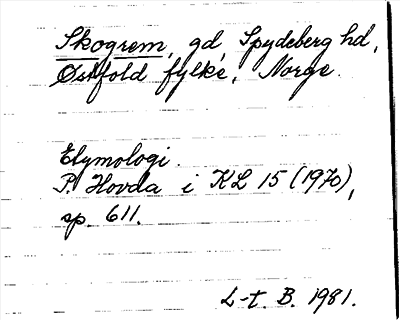 Skogrem, gd, Spydeberg hd,
Østfold fylke, Norge.
Etymologi.
P. Hovda i KL 15 (1970),
sp. 611.
L-t. B. 1981.